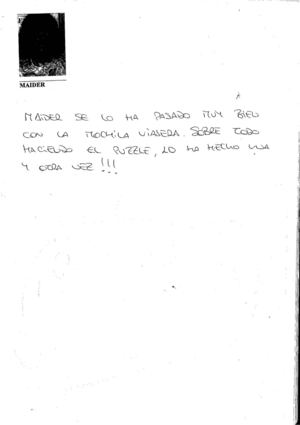 MAIDER
MAIDER SE LO HA PASADO MUY BIEN
CON LA MOCHILA VIAJERA. SOBRE TODO
HACIENDO EL PUZZLE, LO HA HECHO UNA
Y OTRA VEZ!!!